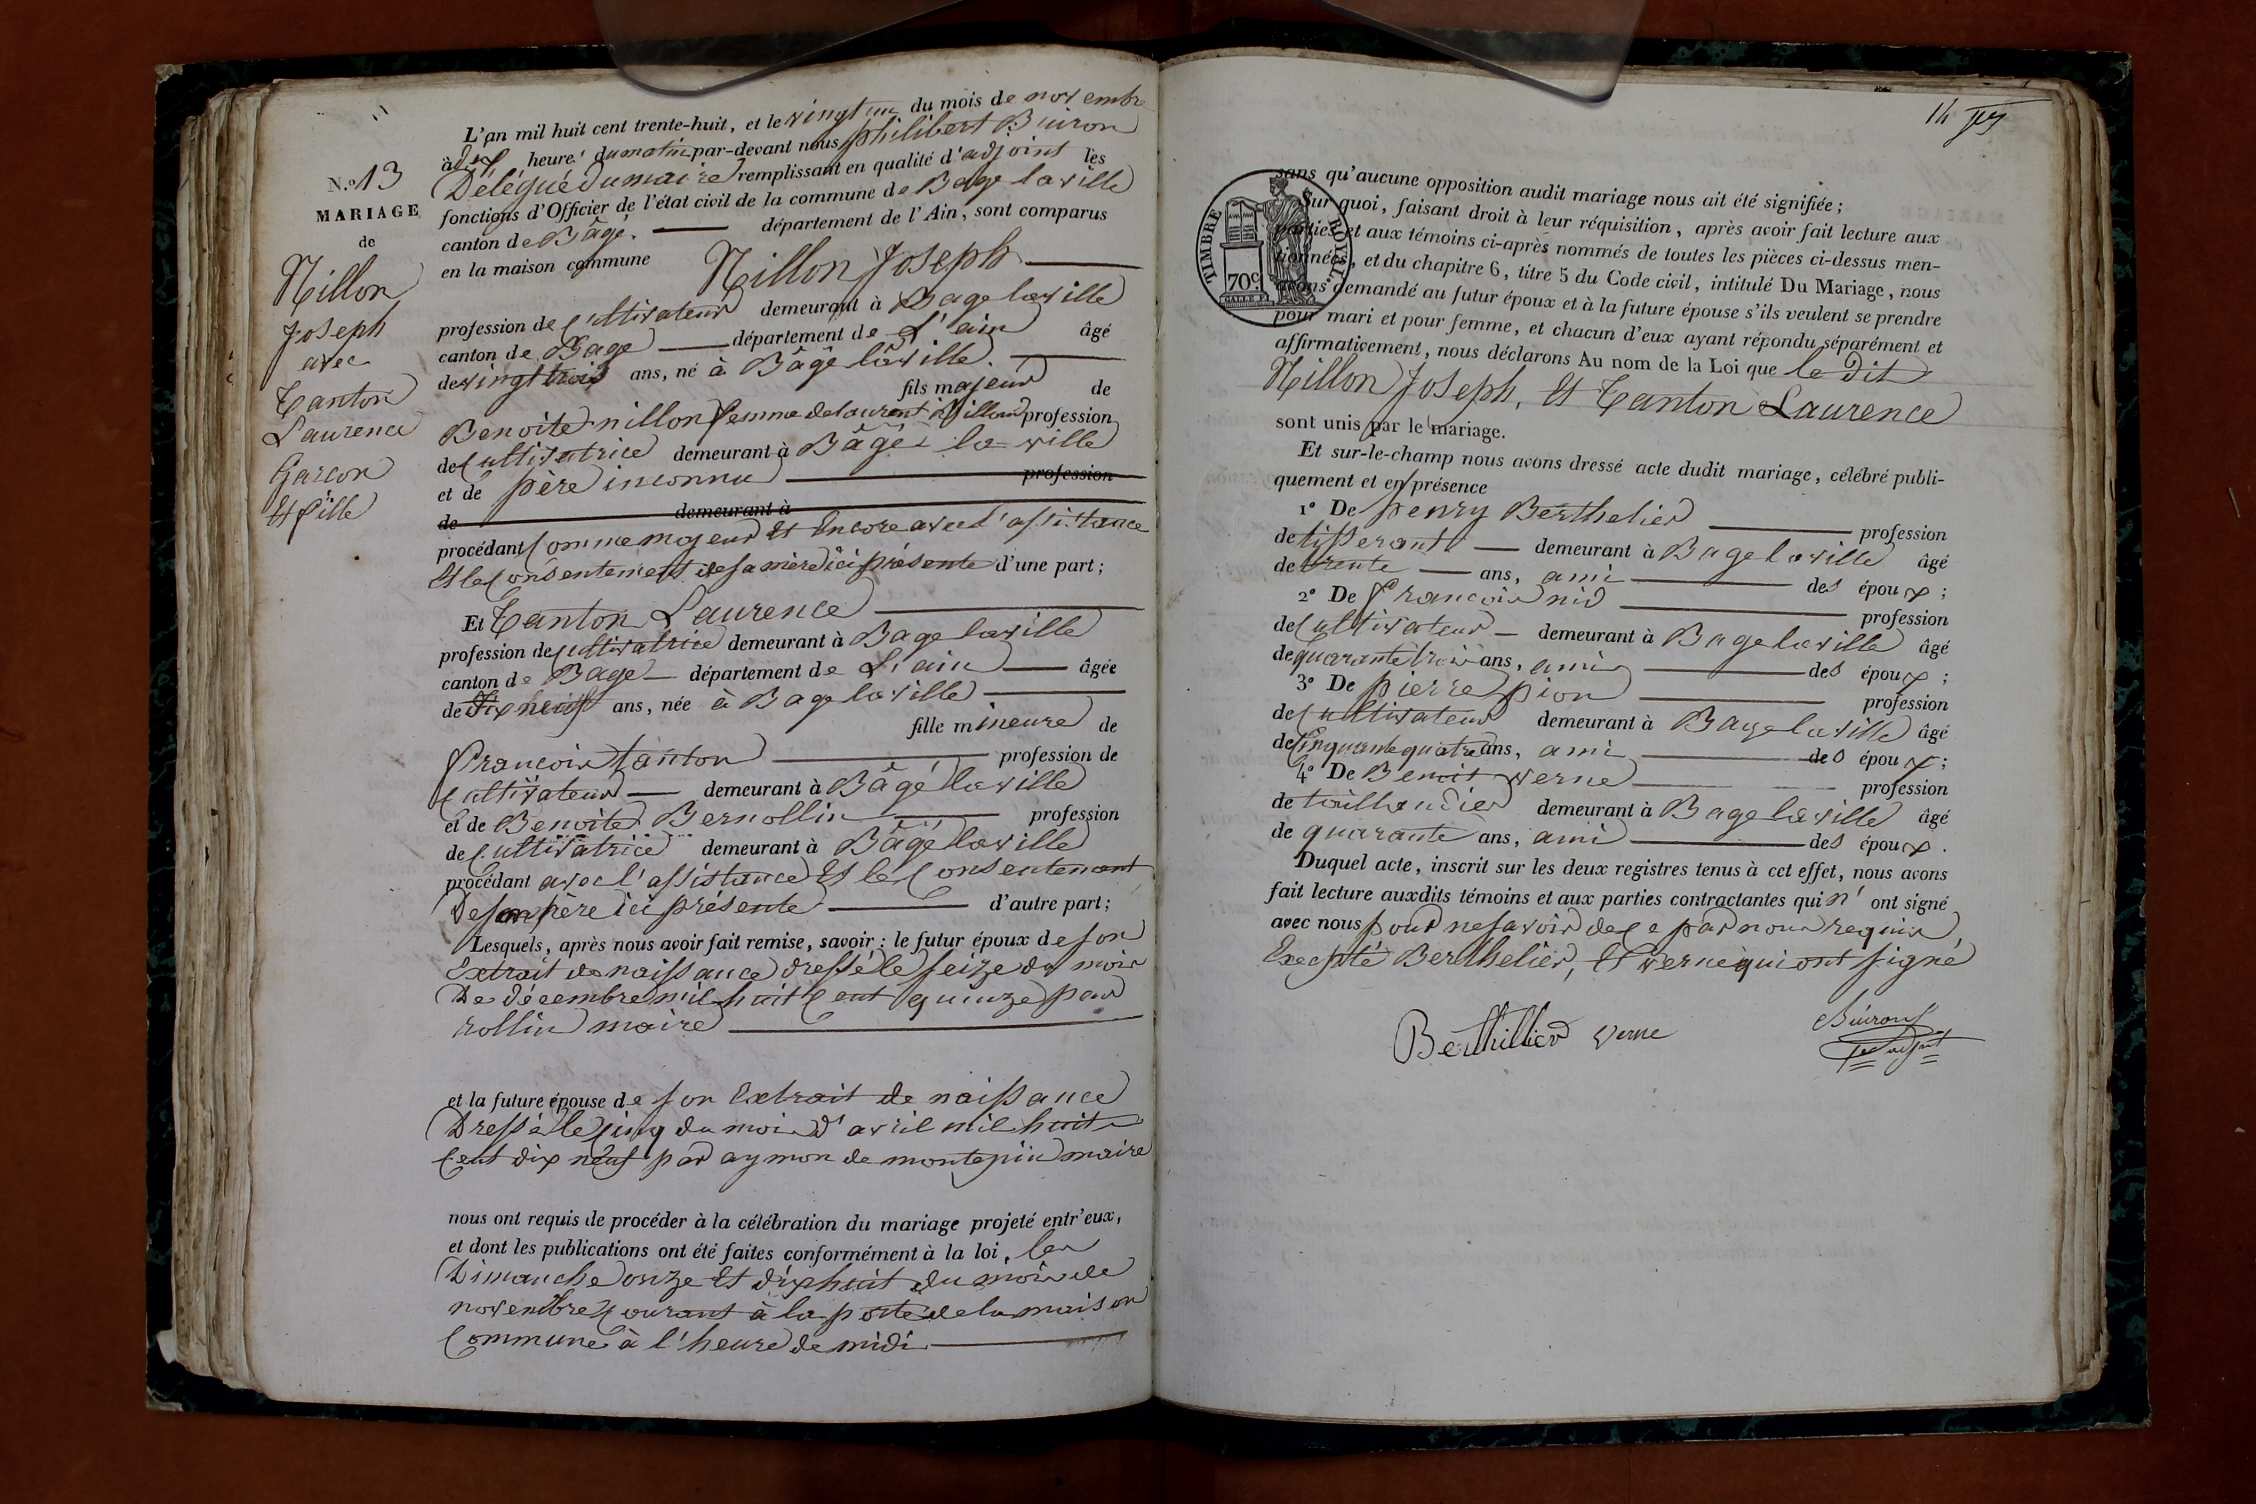 L'an mil huit cent trente-huit, et le vingt un du mois de novembre
à dix heure du matin par-devant nous philibert Buiron
Délégué du maire remplissant en qualité d'adjoint les
fonctions d'Officier de l'état civil de la commune de Bage la ville
canton de Bâgé. département de l'Ain, sont comparus
en la maison commune Nillon Joseph
profession de Cultivateur demeurant à Bage la ville
canton de Bage département de L'ain âgé
de vingt trois ans, né à Bâgé la ville.
fils majeur de
Benoite nillon femme de laurent Nillon profession
de Cultivatrice demeurant à Bâgé la ville
et de père inconnu profession
de demeurant à
procédant Comme majeur Et Encore avec l'assistance
Et le Consentement de sa mère ici présente d'une part;
Et Tanton Laurence
profession de Cultivatrice demeurant à Bage la ville
canton de Bage département de L'ain âgée
de Dix neuf ans, née à Bage la ville
fille mineure de
francois tanton profession de
Cultivateur demeurant à Bâgé la ville
et de Benoite Bernollin profession
de Cultivatrice demeurant à Bâgé la ville
procédant avec l'assistance Et le Consentement
De son père ici présente d'autre part;
Lesquels, après nous avoir fait remise, savoir: le futur époux de son
Extrait de naissance dressé le seize du mois
De décembre mil huit Cent quinze par
rollin maire
et la future épouse de son Extrait de naissance
Dressé le Cinq du mois d'avril mil huit
Cent dix neuf par aymon de montepin maire
nous ont requis de procéder à la célébration du mariage projeté entr'eux,
et dont les publications ont été faites conformément à la loi, les
Dimanche onze Et dix huit du mois de
novembre Courant à la porte de la maison
Commune à l'heure de midi
N.º 13
MARIAGE
de
Nillon
Joseph
avec
Tanton
Laurence
Garcon
Et fille
14
TIMBRE ROYAL
70c
sans qu'aucune opposition audit mariage nous ait été signifiée;
Sur quoi, faisant droit à leur réquisition, après avoir fait lecture aux
parties et aux témoins ci-après nommés de toutes les pièces ci-dessus men-
tionnées, et du chapitre 6, titre 5 du Code civil, intitulé Du Mariage, nous
avons demandé au futur époux et à la future épouse s'ils veulent se prendre
pour mari et pour femme, et chacun d'eux ayant répondu séparément et
affirmativement, nous déclarons Au nom de la Loi que le dit
Nillon Joseph, Et Tanton Laurence
sont unis par le mariage.
Et sur-le-champ nous avons dressé acte dudit mariage, célébré publi-
quement et en présence
1º De henry Berthelier profession
de tisserant demeurant à Bage la ville âgé
de trente ans, ami des époux;
2º De francois nid profession
de Cultivateur demeurant à Bage la ville âgé
de quarante trois ans, ami des époux;
3º De pierre pion profession
de Cultivateur demeurant à Bage la ville âgé
de Cinquante quatre ans, ami des époux;
4º De Benoit verne profession
de taillandier demeurant à Bage la ville âgé
de quarante ans, ami des époux.
Duquel acte, inscrit sur les deux registres tenus à cet effet, nous avons
fait lecture auxdits témoins et aux parties contractantes qui n'ont signé
avec nous pour ne savoir de Ce par nous requis,
Excepté Berthelier, Et verne qui ont signé
Berthillier Verne Buiron
adjoint